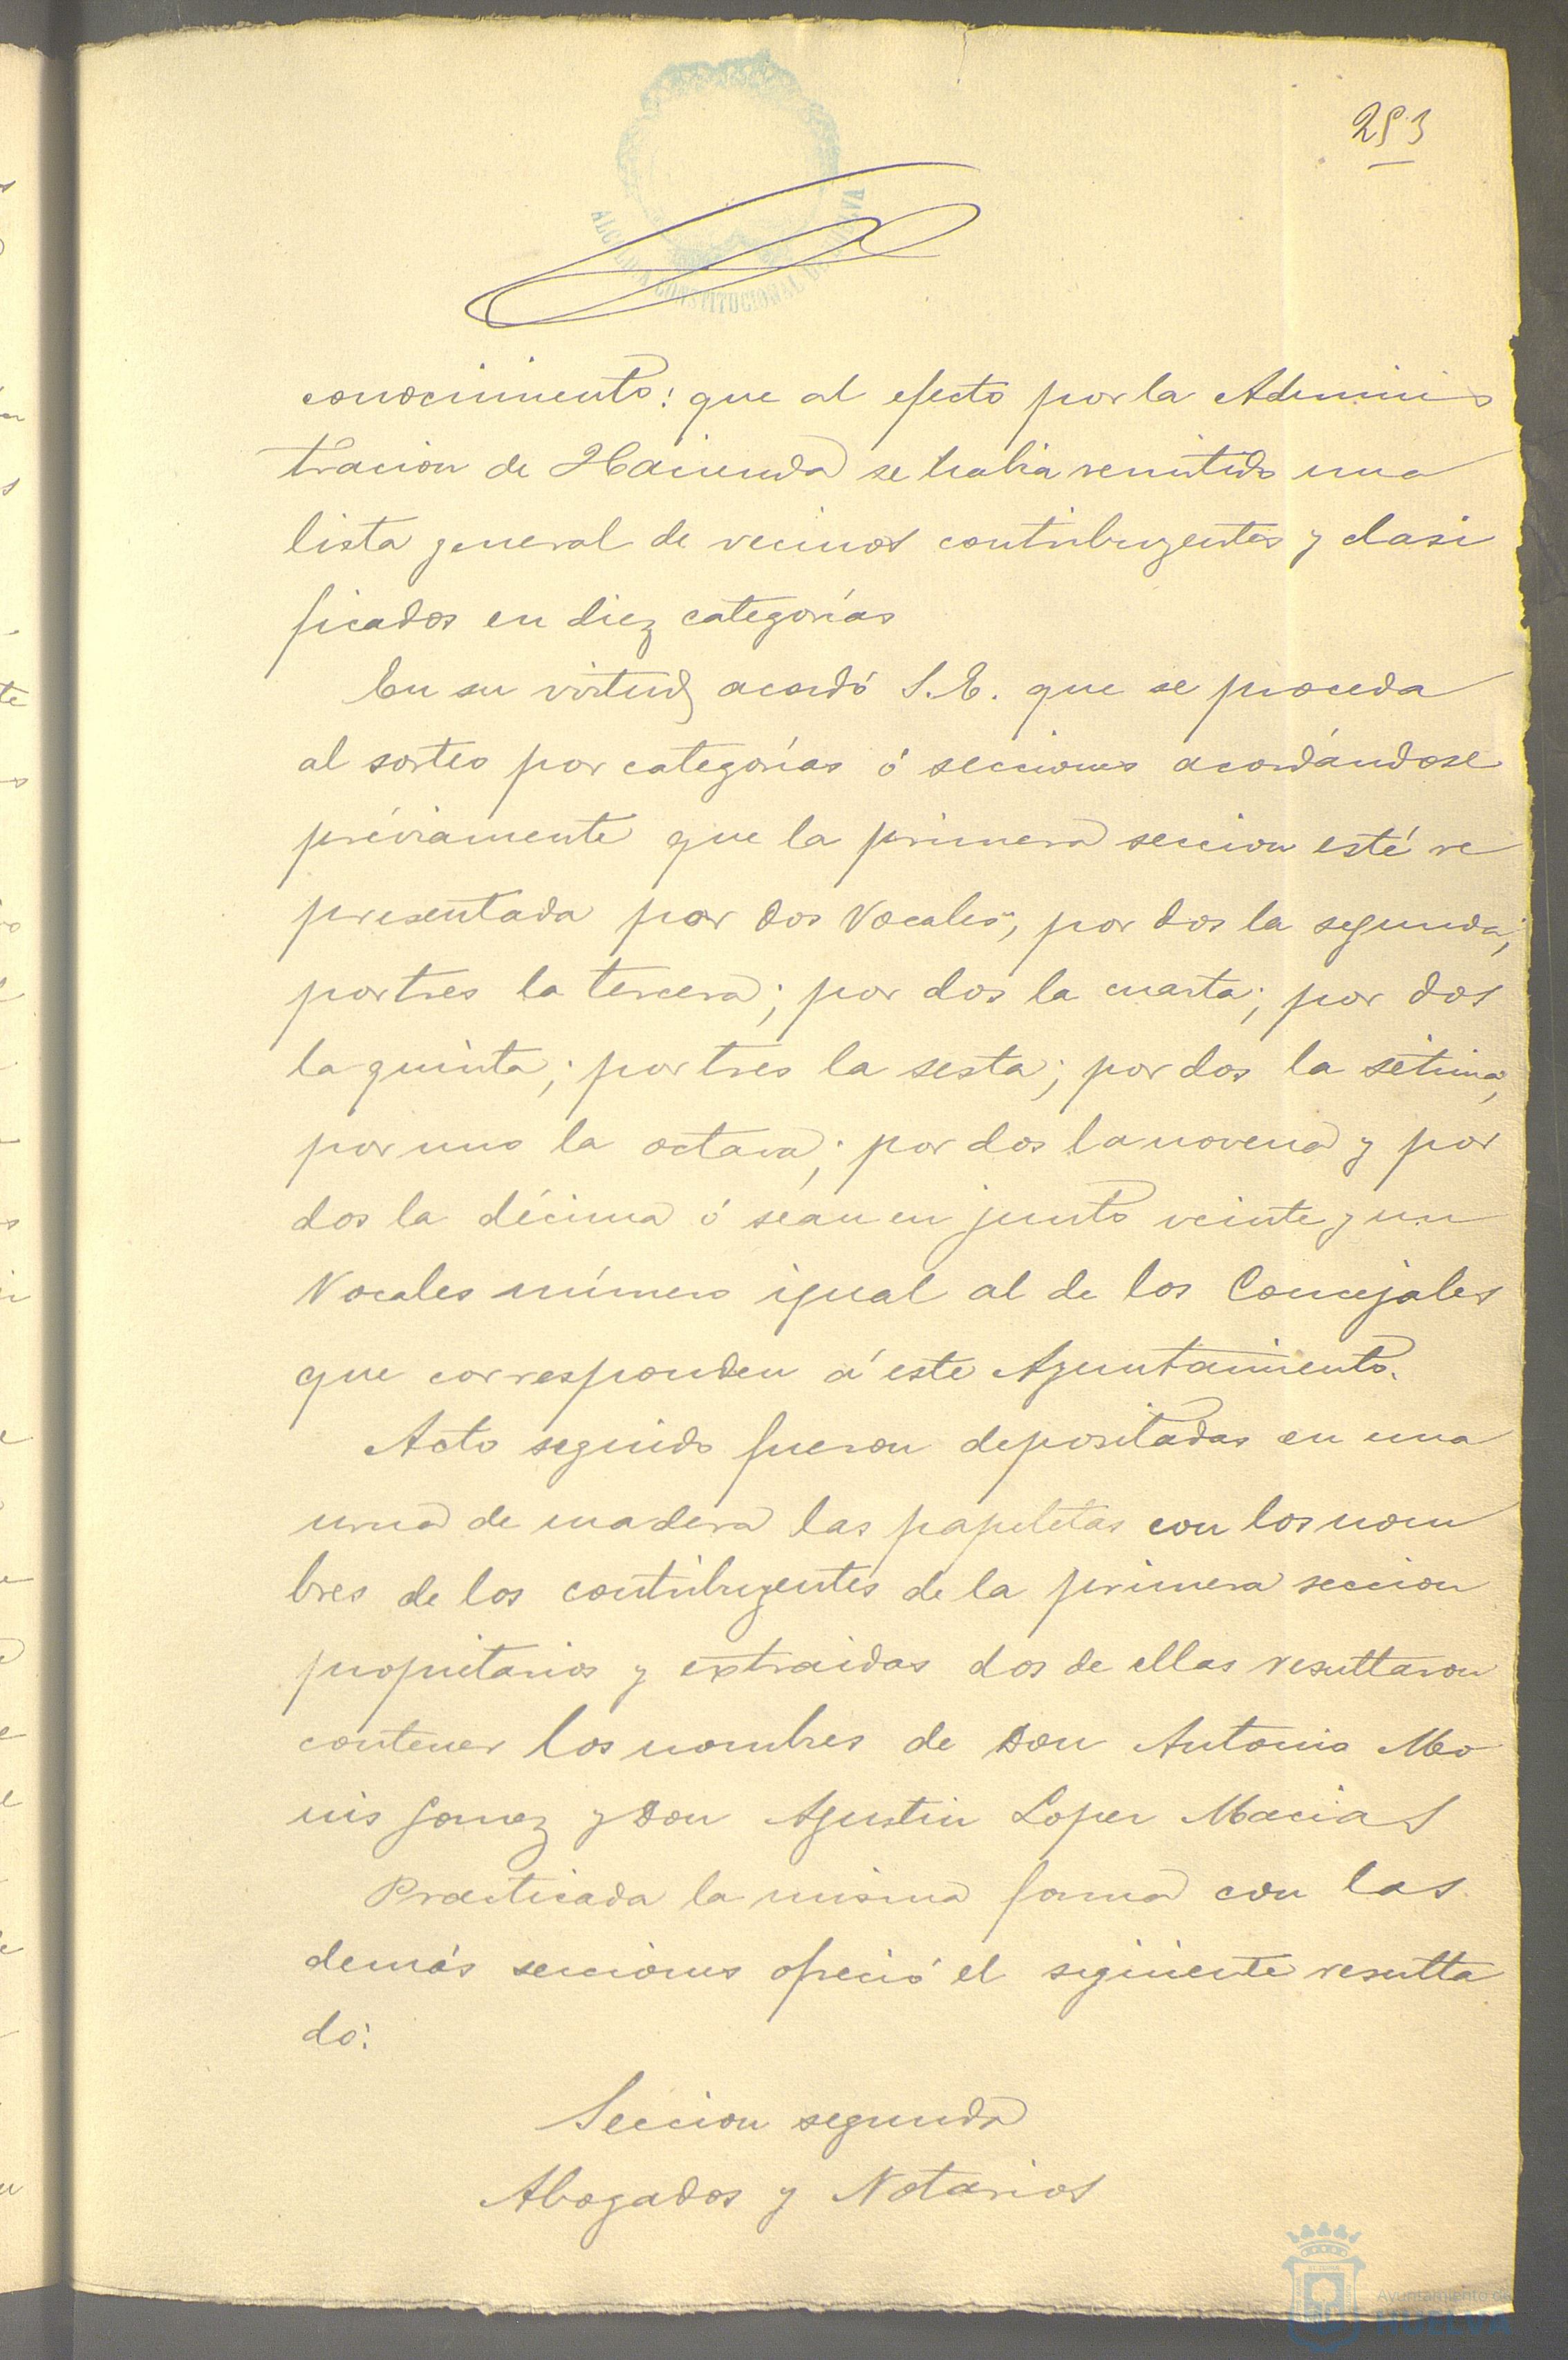 253
ALCALDIA CONSTITUCIONAL DE HUELVA
conocimiento: que al efecto por la Adminis
tracion de Hacienda se habia remitido una
lista general de vecinos contribuyentes y clasi
ficados en diez categorías
En su virtud acordó S.E. que se proceda
al sorteo por categorías ó secciones acordándose
préviamente que la primera seccion esté re
presentada por dos Vocales; por dos la segunda;
por tres la tercera; por dos la cuarta; por dos
la quinta; por tres la sesta; por dos la sétima;
por uno la octava; por dos la novena y por
dos la décima ó sean en junto veinte y un
Vocales número igual al de los Concejales
que corresponden á este Ayuntamiento.
Acto seguido fueron depositadas en una
urna de madera las papeletas con los nom
bres de los contribuyentes de la primera seccion
propietarios y extraidas dos de ellas resultaron
contener los nombres de Don Antonio Mo
nis Gomez y Don Agustin Lopez Macias
Practicada la misma forma con las
demás secciones ofreció el siguiente resulta
do:
Seccion segunda
Abogados y Notarios
Ayuntamiento de
HUELVA